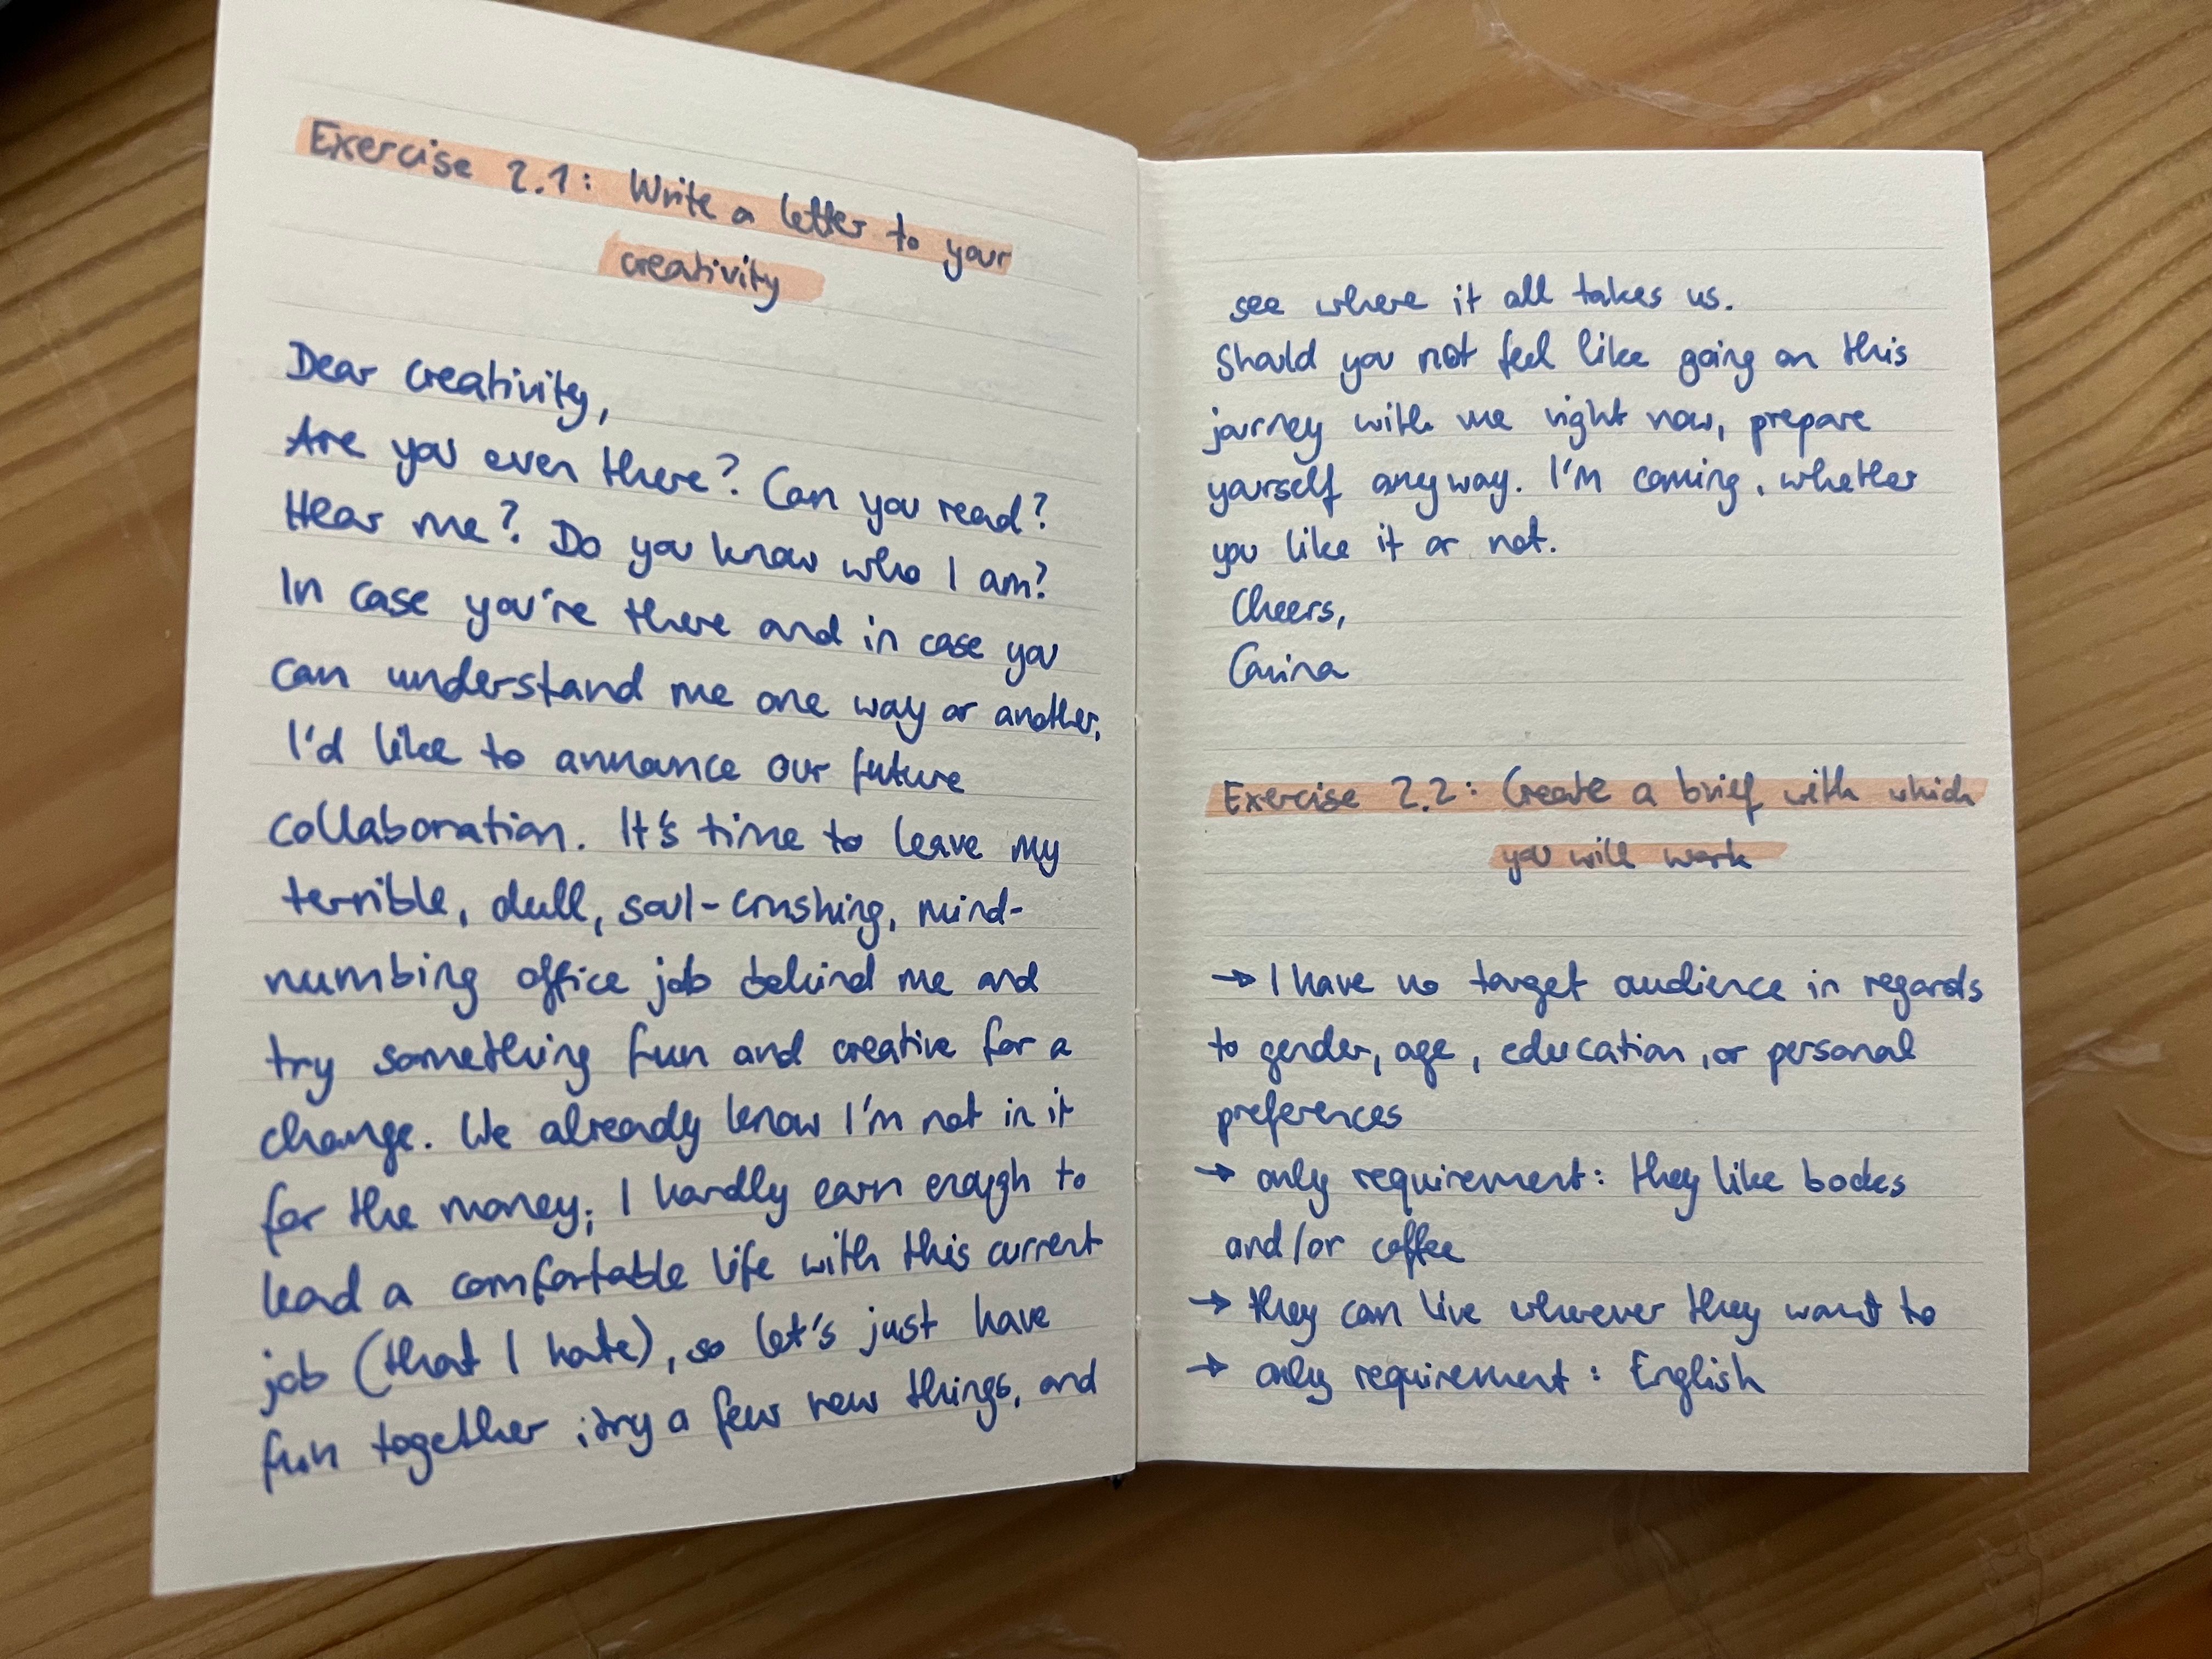 Exercise 2.1: Write a letter to your
creativity
Dear Creativity,
Are you even there? Can you read?
Hear me? Do you know who I am?
In case you're there and in case you
can understand me one way or another,
I'd like to announce our future
collaboration. It's time to leave my
terrible, dull, soul-crushing, mind-
numbing office job behind me and
try something fun and creative for a
change. We already know I'm not in it
for the money; I hardly earn enough to
lead a comfortable life with this current
job (that I hate), so let's just have
fun together, try a few new things, and
see where it all takes us.
Should you not feel like going on this
journey with me right now, prepare
yourself anyway. I'm coming, whether
you like it or not.
Cheers,
Carina
Exercise 2.2: Create a brief with which
you will work
→ I have no target audience in regards
to gender, age, education, or personal
preferences
→ only requirement: they like books
and/or coffee
→ they can live wherever they want to
→ only requirement: English